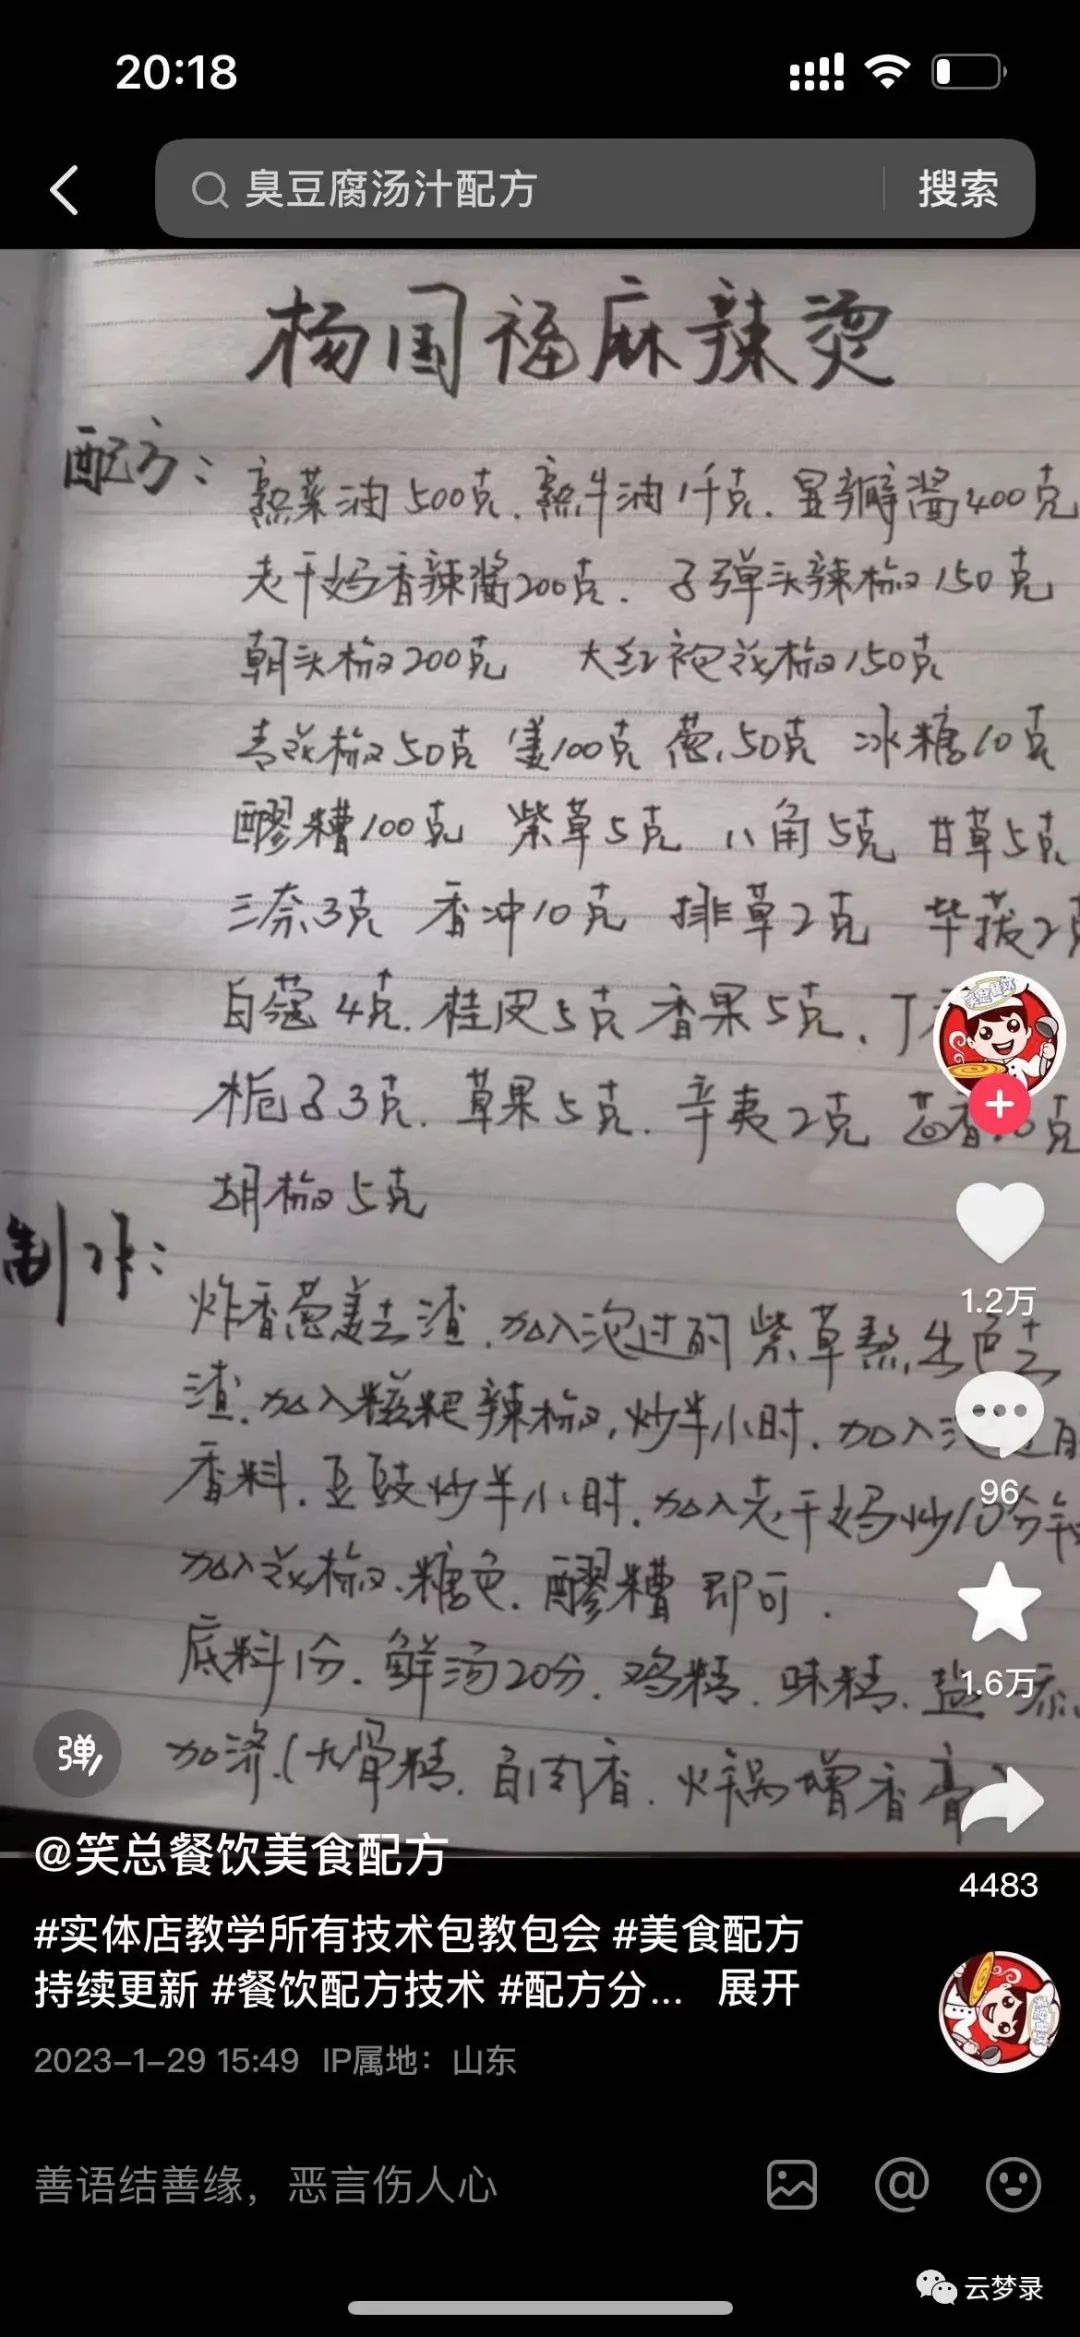 20:18
臭豆腐汤汁配方 搜索
杨国福麻辣烫
配方: 熟菜油500克.熟牛油1千克.豆瓣酱400克
老干妈香辣酱200克. 子弹头辣椒150克
朝天椒200克 大红袍花椒150克
青花椒50克 姜100克 葱50克 冰糖10克
醪糟100克 紫草5克 八角5克 甘草5克
三奈3克 香冲10克 排草2克 毕拨2克
白蔻4克.桂皮5克 香果5克.丁
栀子3克.草果5克.辛夷2克 茴香 克
胡椒5克
制作:
炸香葱姜去渣.加入泡过的紫草熬出色去
渣.加入糍粑辣椒,炒半小时.加入泡过
香料.豆豉炒半小时.加入老干妈炒10分钟
加入花椒.糖色.醪糟即可.
底料1份.鲜汤20分.鸡精.味精.盐 添
加济.(大骨精.自肉香.火锅增香膏
1.2万
96
1.6万
4483
弹
@笑总餐饮美食配方
#实体店教学所有技术包教包会 #美食配方
持续更新 #餐饮配方技术 #配方分... 展开
2023-1-29 15:49 IP属地：山东
善语结善缘，恶言伤人心
云梦录